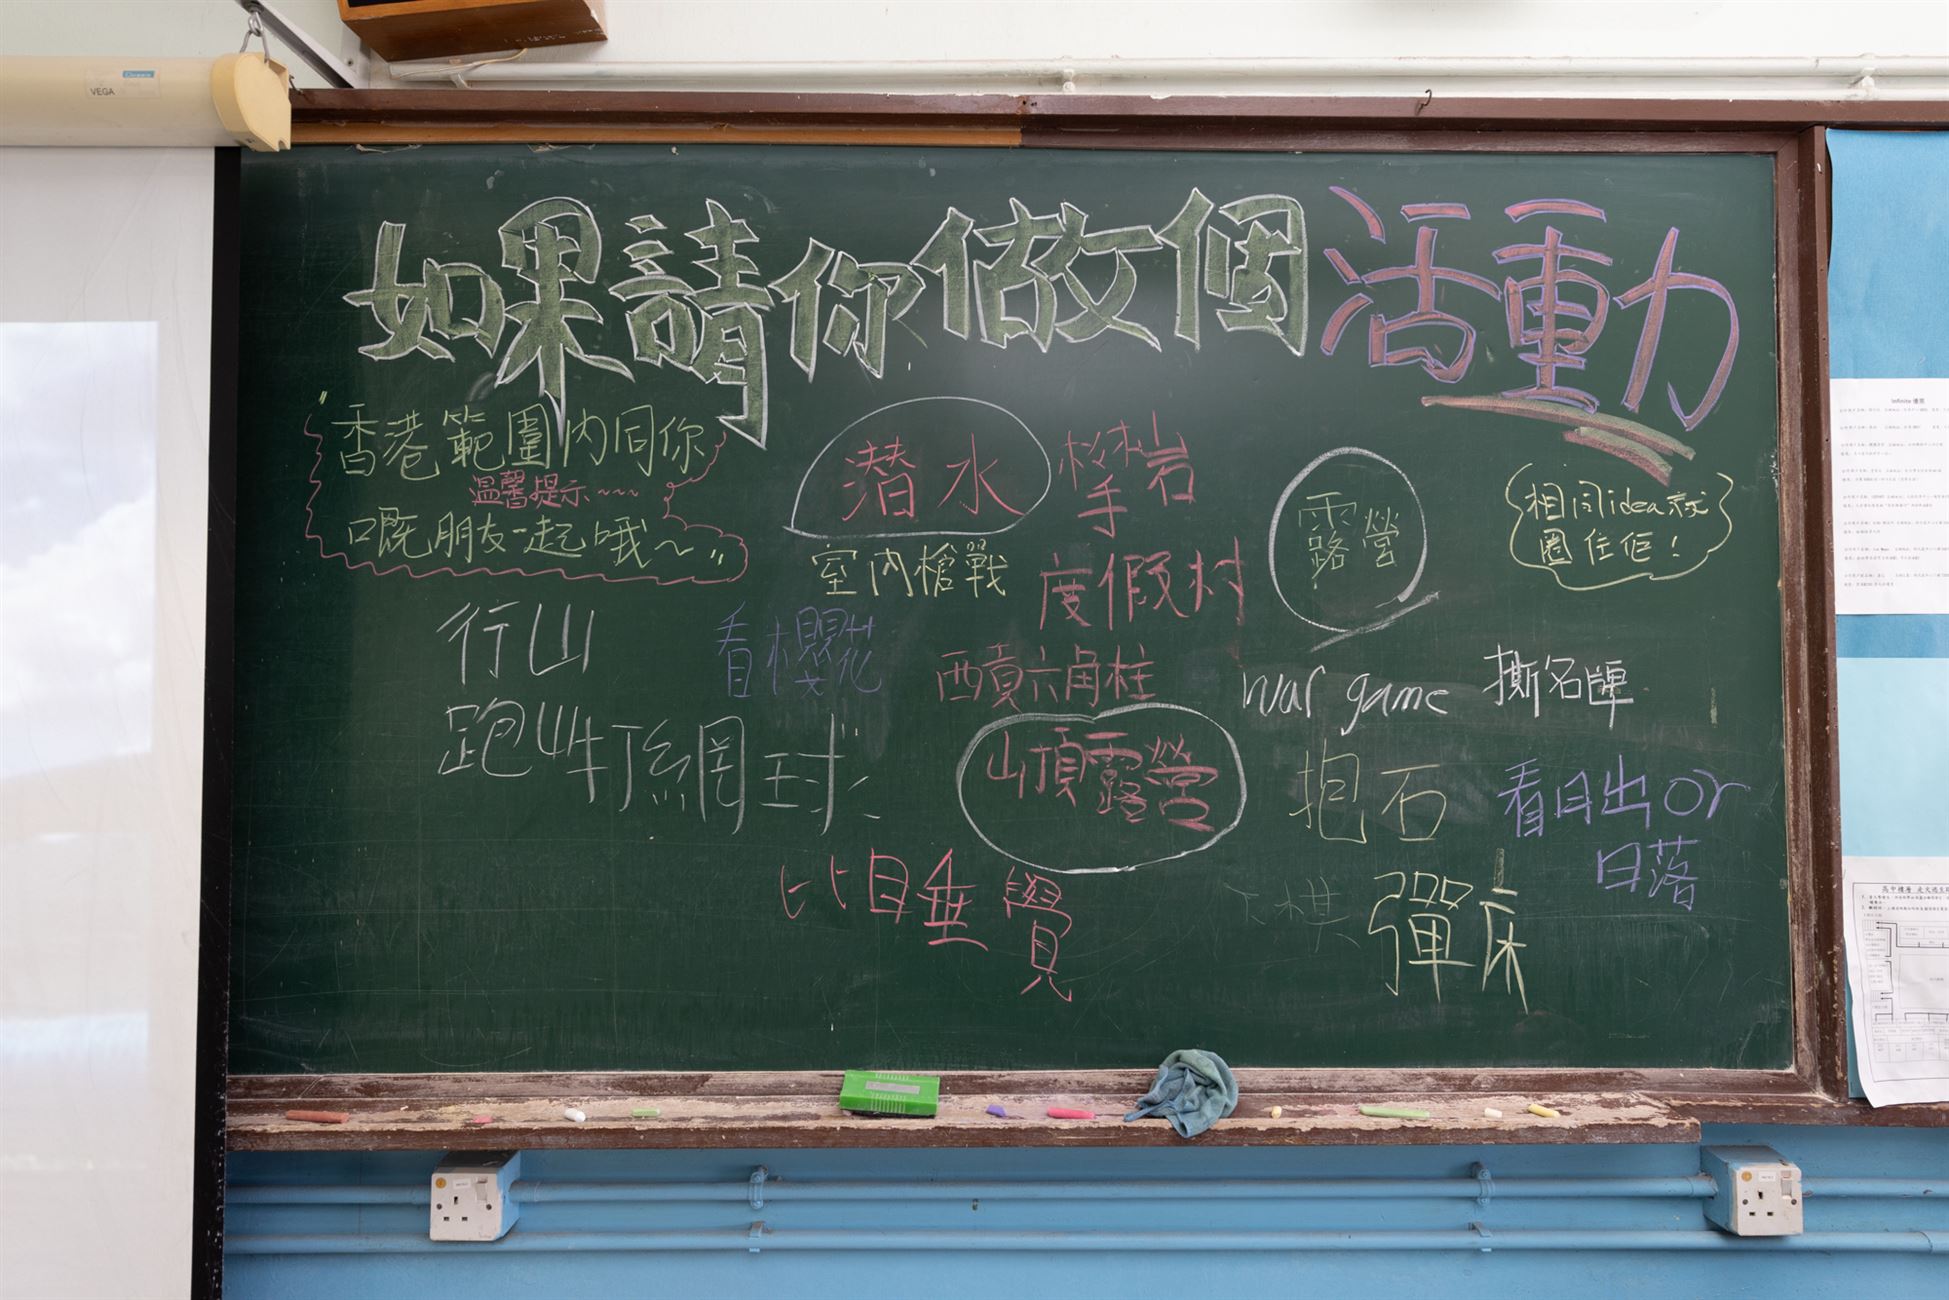 如果請你做個活動
"香港範圍內同你
溫馨提示~~~
嘅朋友一起哦~"
潛水
攀岩
露營
相同idea就
圈住佢!
室內槍戰
度假村
行山
看櫻花
西貢六角柱
war game
撕名牌
跑山
打網球
山頂露營
抱石
看日出or
日落
比目垂覺
下棋
彈床
VEGA
Infinite 優惠